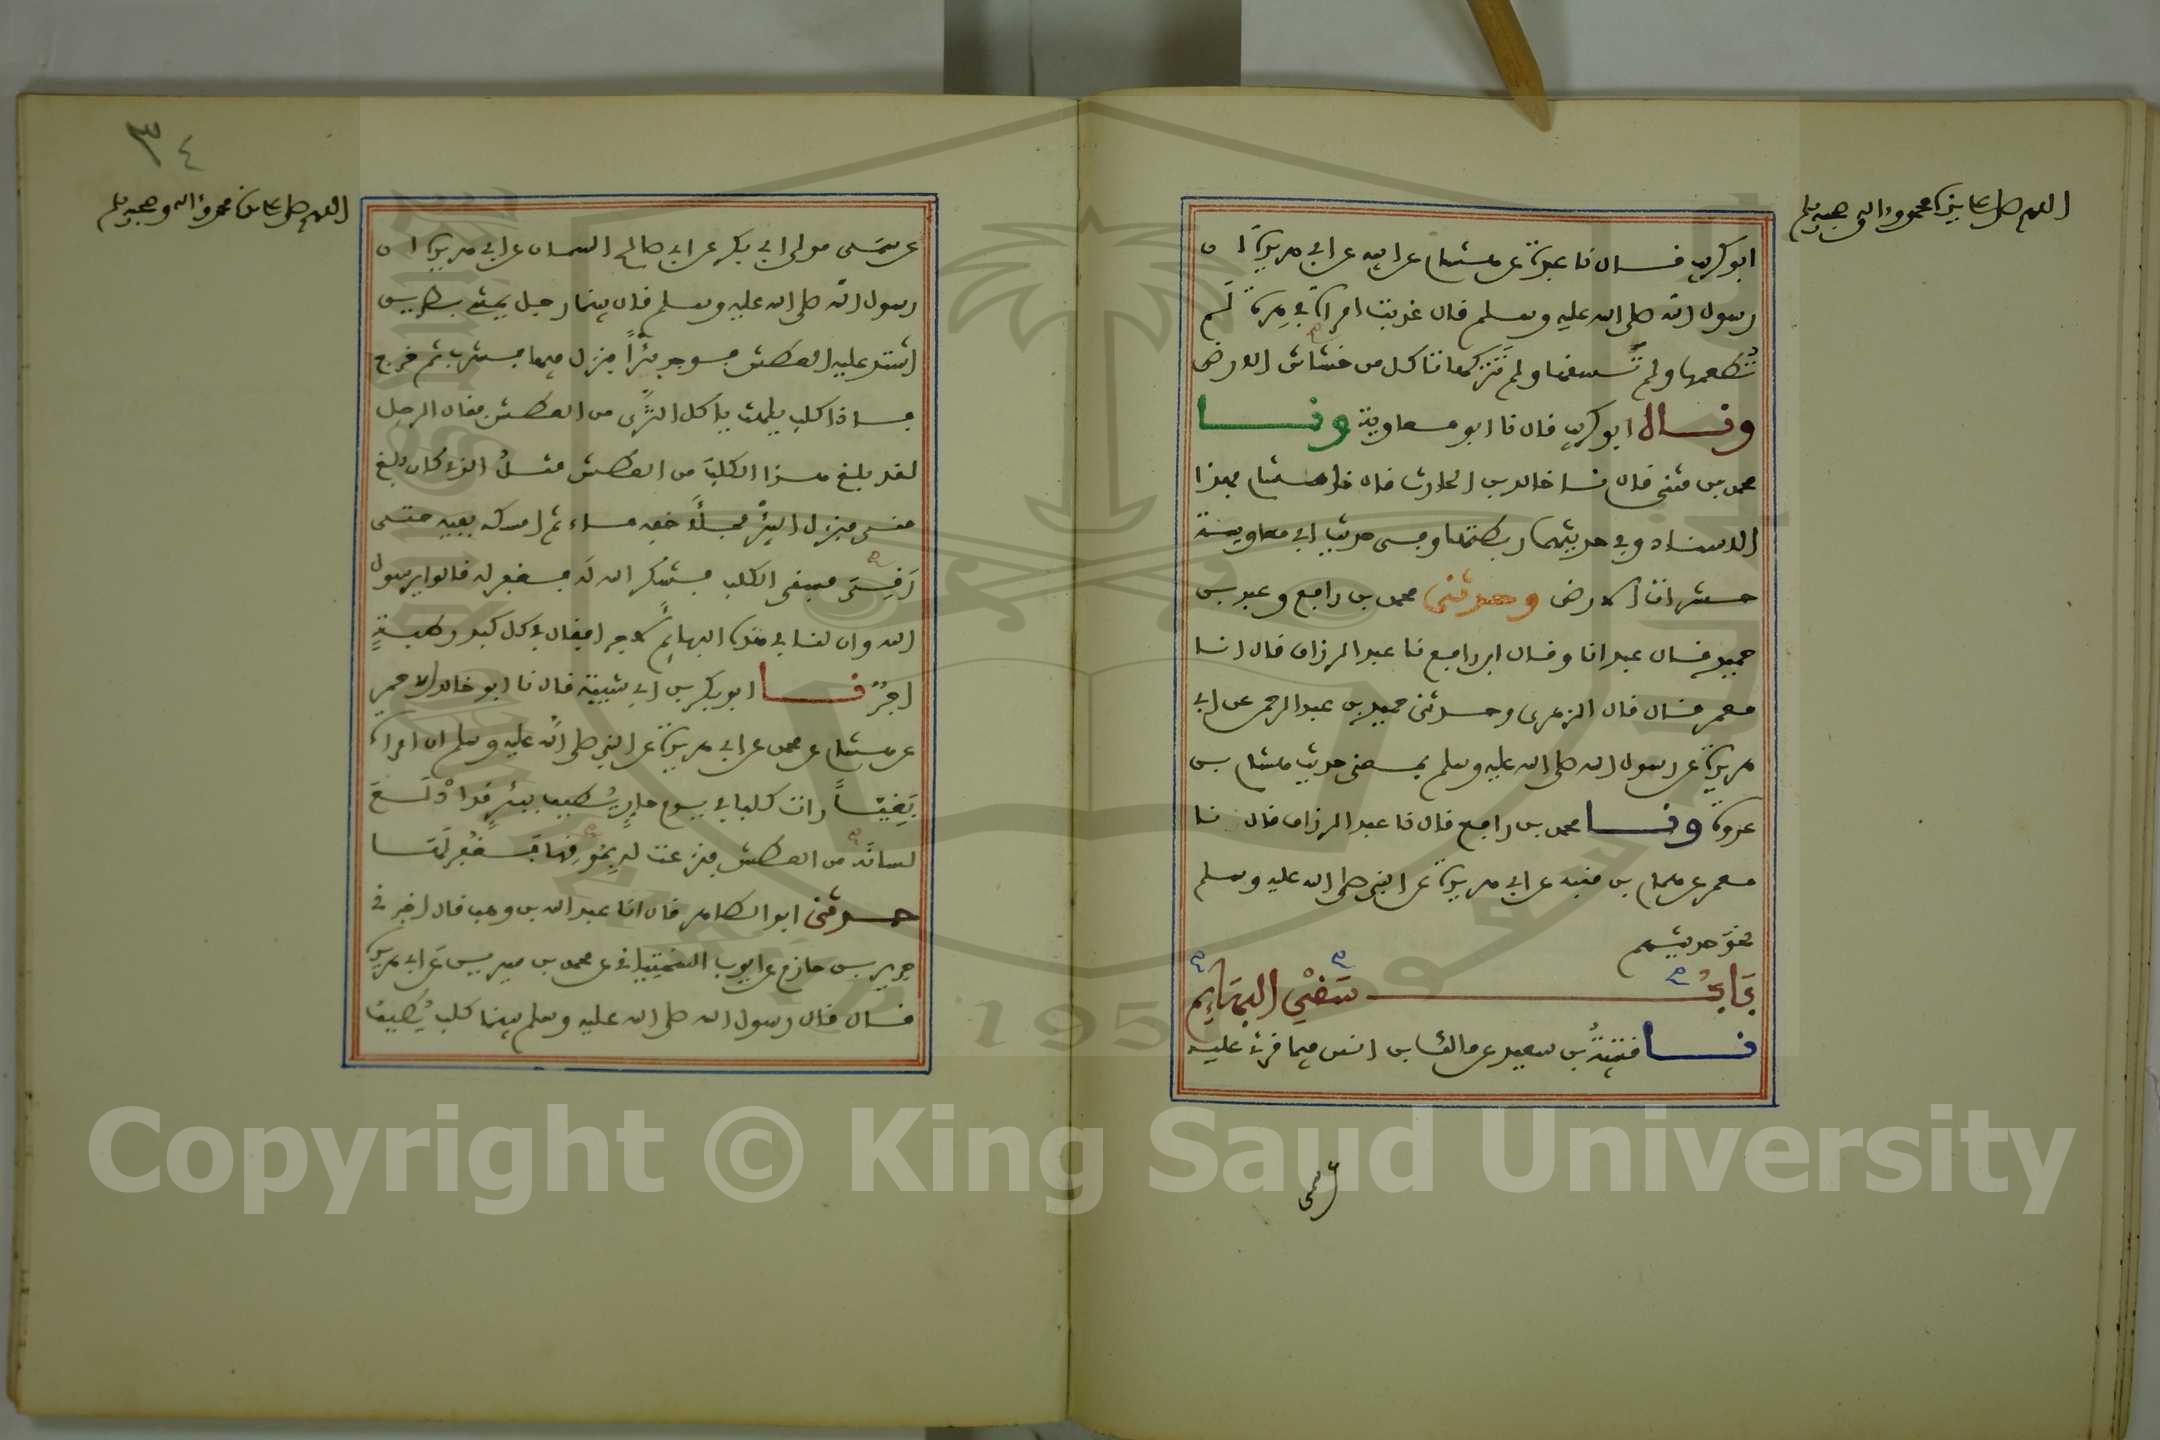 اللهم صل على سيدنا محمد وآله وصحبه وسلم
ابو كريب قال نا عبدة عن هشام عن ابيه عن ابي هريرة ان
رسول الله صلى الله عليه وسلم قال عذبت امراة في هرة لم
تطعمها ولم تسقها ولم تتركها تاكل من خشاش الارض
وقال ابو كريب قال نا ابو معاوية ونا
محمد بن مثنى قال نا خالد بن الحارث قال نا هشام بهذا
الاسناد وفي حديثهما ربطتها وفي حديث ابي معاوية
حشرات الارض وحدثني محمد بن رافع وعبد بن
حميد قال عبد انا وقال ابن رافع نا عبد الرزاق قال انا
معمر قال قال الزهري وحدثني حميد بن عبد الرحمن عن ابي
هريرة عن رسول الله صلى الله عليه وسلم بمعنى حديث هشام بن
عروة ونا محمد بن رافع قال نا عبد الرزاق قال نا
معمر عن همام بن منبه عن ابي هريرة عن النبي صلى الله عليه وسلم
نحو حديثهم
باب سقي البهايم
نا قتيبة بن سعيد عن مالك بن انس فيما قرئ عليه
عن سمي
٣٤
اللهم صل على سيدنا محمد وآله وصحبه وسلم
عن سمي مولى ابي بكر عن ابي صالح السمان عن ابي هريرة ان
رسول الله صلى الله عليه وسلم قال بينما رجل يمشي بطريق
اشتد عليه العطش فوجد بئرا فنزل فيها فشرب ثم خرج
فاذا كلب يلهث ياكل الثرى من العطش فقال الرجل
لقد بلغ هذا الكلب من العطش مثل الذي كان بلغ
مني فنزل البئر فملأ خفه ماء ثم امسكه بفيه حتى
رقي فسقى الكلب فشكر الله له فغفر له قالوا يرسول
الله وان لنا في هذه البهائم لاجرا فقال في كل كبد رطبة
اجر نا ابو بكر بن ابي شيبة قال نا ابو خالد الاحمر
عن هشام عن محمد عن ابي هريرة عن النبي صلى الله عليه وسلم ان امراة
بغيا رات كلبا في يوم حار يطيف ببئر قد ادلع
لسانه من العطش فنزعت له بموقها فغفر لها
حدثني ابو الطاهر قال انا عبد الله بن وهب قال اخبرني
جرير بن حازم عن ايوب السختياني عن محمد بن سيرين عن ابي هريرة
قال قال رسول الله صلى الله عليه وسلم بينما كلب يطيف
Copyright © King Saud University
1957